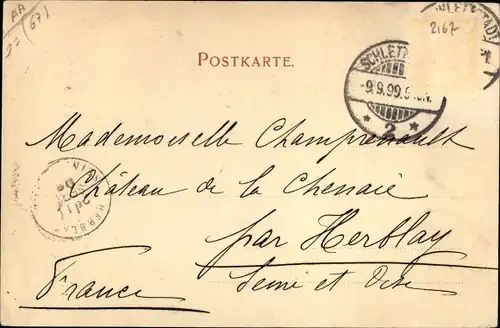 AA
(67)
2167
POSTKARTE.
SCHLETTSTADT
-9.9.99.
* 2 *
Mademoiselle Champrenault
Château de la Chenaie
HERBLAY
par Herblay
France Seine et Oise